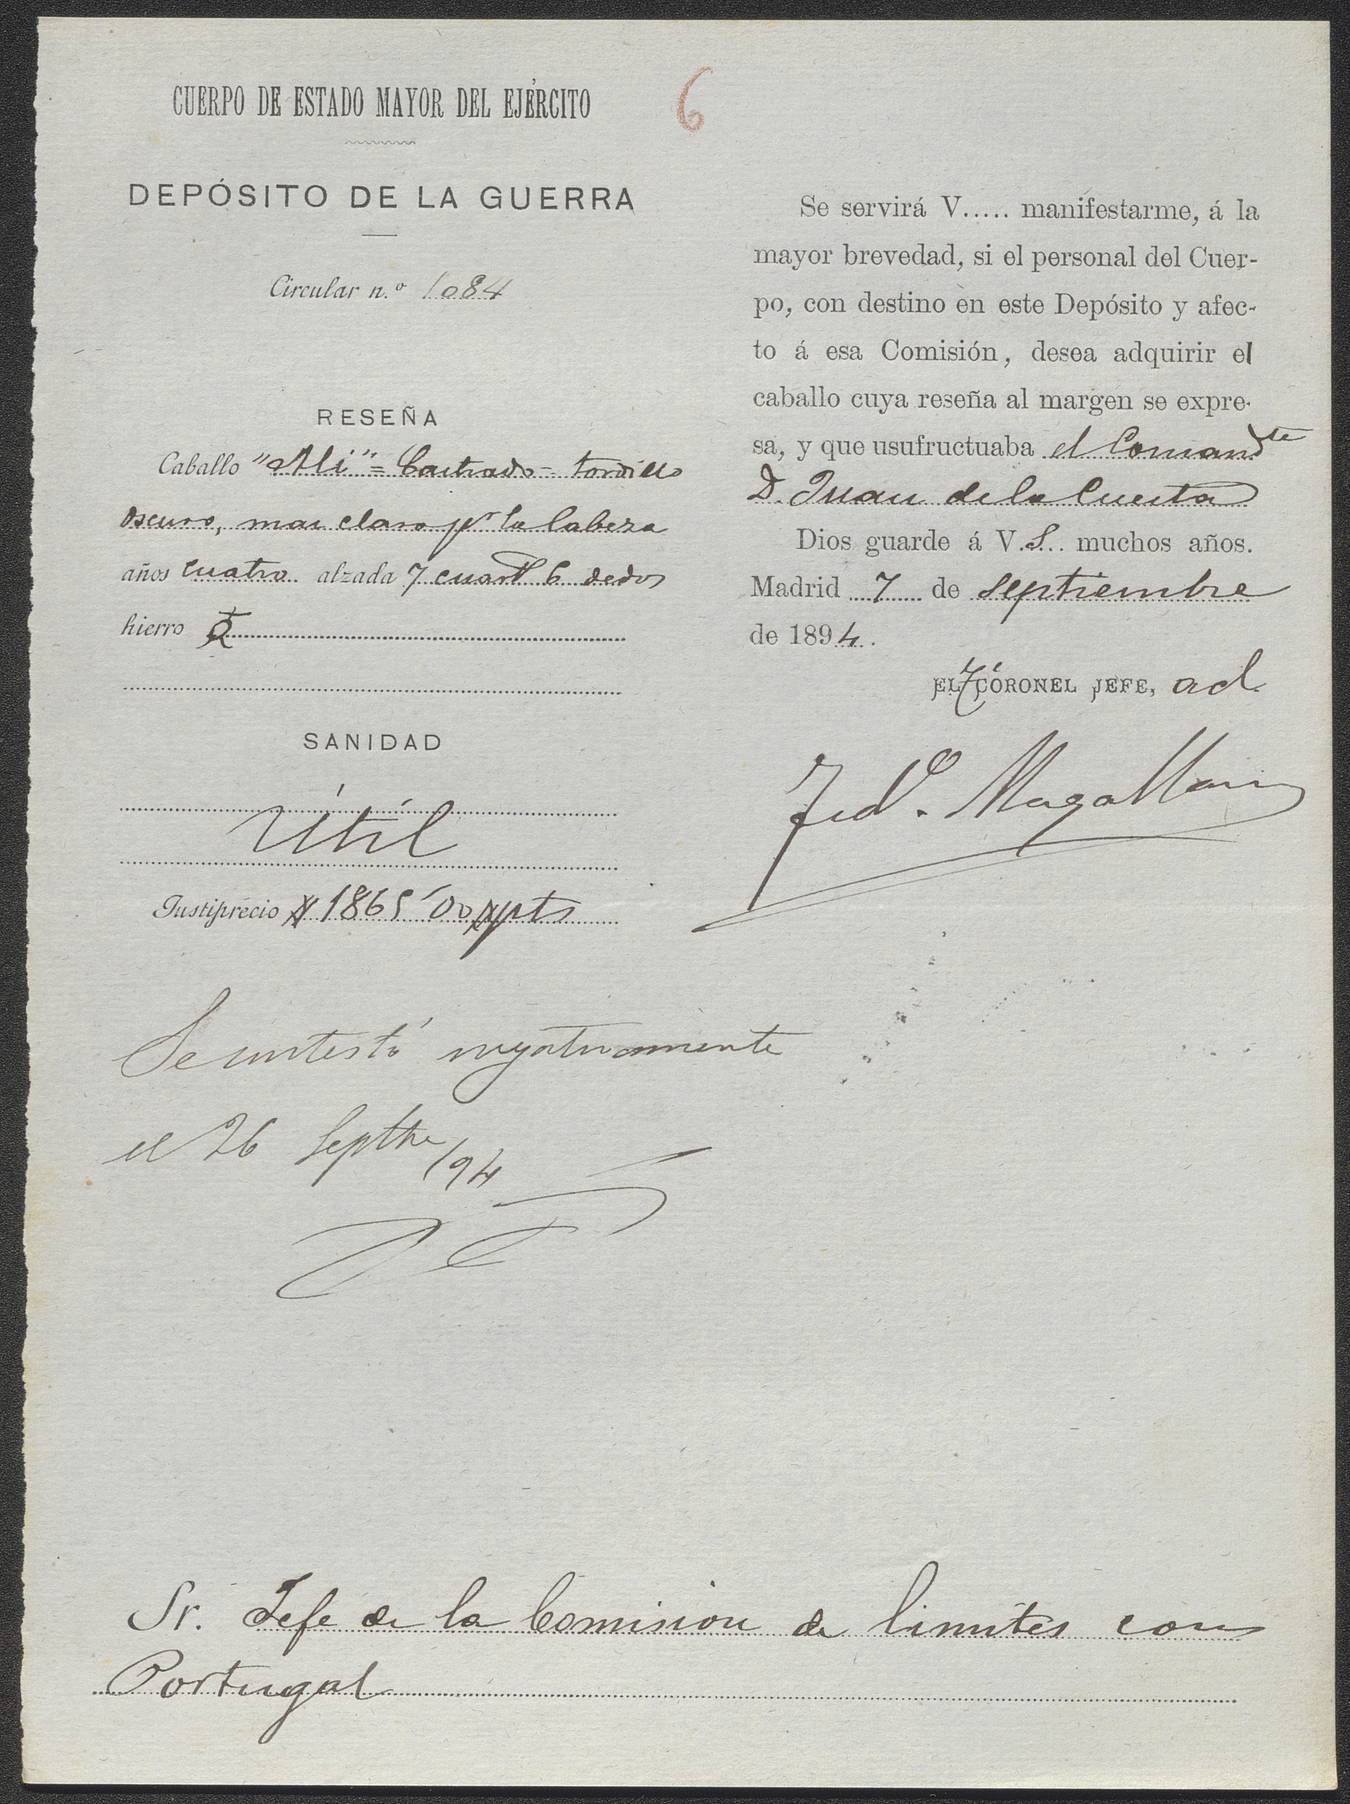 6
CUERPO DE ESTADO MAYOR DEL EJÉRCITO
DEPÓSITO DE LA GUERRA
Circular n.º 1084
RESEÑA
Caballo "Ali" = Castrado = tordillo
oscuro, mas claro pr la Cabeza
años cuatro alzada 7 cuarts 6 dedos
hierro
SANIDAD
Útil
Justiprecio # 1865'00 # pts
Se contestó negativamente
el 26 Septbre/94
Se servirá V..... manifestarme, á la
mayor brevedad, si el personal del Cuer-
po, con destino en este Depósito y afec-
to á esa Comisión, desea adquirir el
caballo cuya reseña al margen se expre-
sa, y que usufructuaba el Comandte
D. Juan de la Cuesta
Dios guarde á V.S.. muchos años.
Madrid 7 de Septiembre
de 1894.
EL T. CORONEL JEFE, acl
Fedo. Magallanes
Sr. Jefe de la Comision de limites con
Portugal